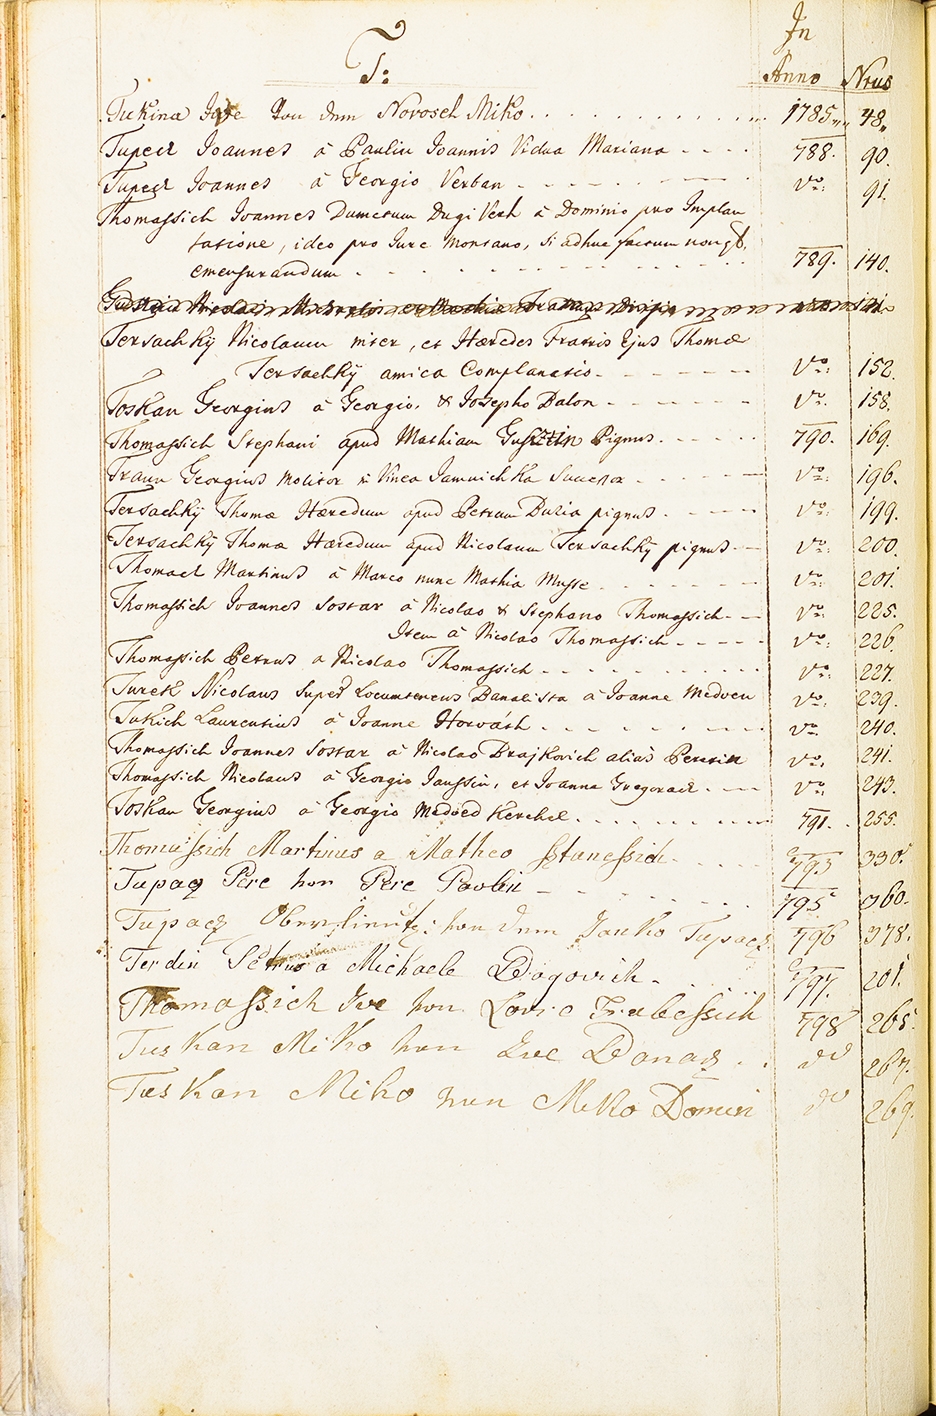 T:
In
Anno Nrus
Tukina Ive von dem Novosel Miko 1785 48.
Tupecz Joannes â Paulin Joannis Vidua Mariana 788. 90.
Tupecz Joannes â Georgio Verban do: 91.
Thomassich Joannes Dumetum Dugi Verh â Dominio pro Implan
tatione, ideo pro Jure Montano, si adhuc factum non est,
emensurandum 789. 140.
Tersachkÿ Nicolaum inter, et Hæredes Fratris Ejus Thomæ
Tersachkÿ amica Complanatio do: 152.
Toskan Georgius â Georgio, & Josepho Balon do: 158.
Thomassich Stephani apud Mathiam Gustin Pignus 790. 169.
Frann Georgius Molitor in Vinea Jamnichka Successor do: 196.
Tersachkÿ Thomæ Hæredum apud Petrum Buzia pignus do: 199.
Tersachkÿ Thomæ Hæredum apud Nicolaum Tersachkÿ pignus do: 200.
Thomacz Martinus â Marco nunc Mathia Musse do: 201.
Thomassich Joannes Sostar â Nicolao & Stephano Thomassich do: 225.
Item â Nicolao Thomassich do: 226.
Thomassich Petrus a Nicolao Thomassich do: 227.
Turek Nicolaus Locumtenens Banalista â Joanne Medven do: 239.
Tukich Laurentius â Joanne Horváth do: 240.
Thomassich Joannes Sostar â Nicolao Brajkovich aliàs Peretin do: 241.
Thomassich Nicolaus â Georgio Janssin, et Joanna Gregoracz do: 243.
Toskan Georgius â Georgio Medved Kerchel 791. 255.
Thomassich Martinus a Matheo Stanessich 793 330.
Tupacz Pere von Pere Pavlin 795 360.
Tupacz Oberlieut: von dem Janko Tupacz 796 378.
Terdin Petrus a Michaele Dragovich 797. 201.
Thomassich Ive von Lovro Frabessich 798 265.
Tuskan Miko von Ive Banacz do 267.
Tuskan Miko von Miko Domin do 269.